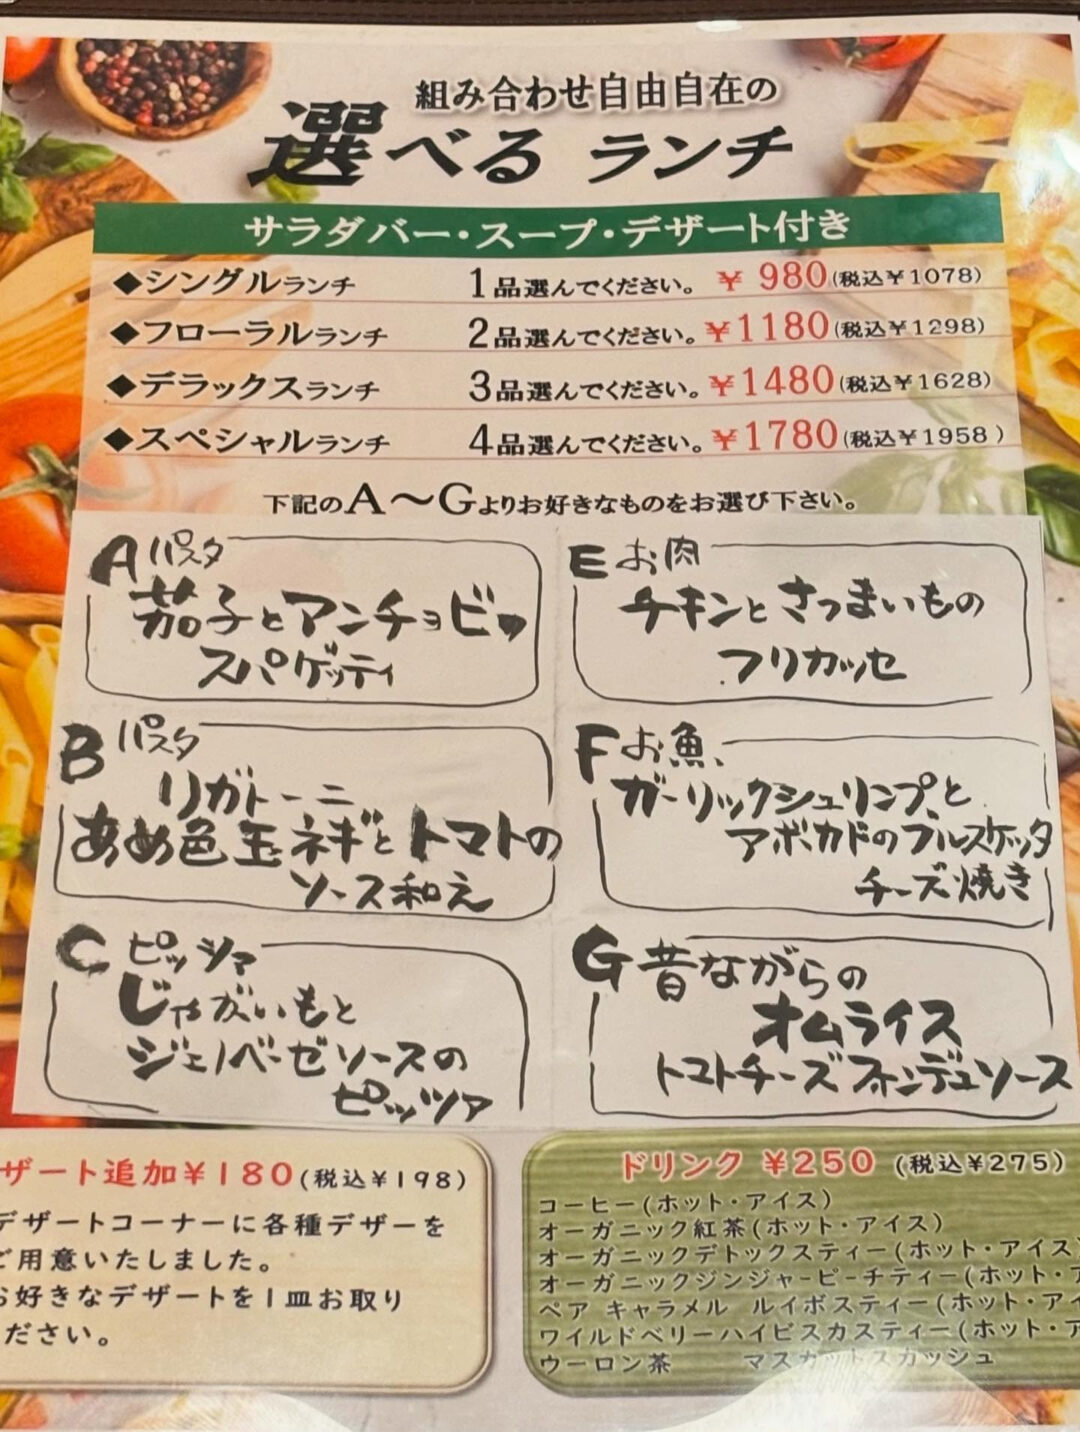 組み合わせ自由自在の
選べる ランチ
サラダバー・スープ・デザート付き
◆シングルランチ 1品選んでください。 ¥ 980(税込¥1078)
◆フローラルランチ 2品選んでください。 ¥1180(税込¥1298)
◆デラックスランチ 3品選んでください。 ¥1480(税込¥1628)
◆スペシャルランチ 4品選んでください。 ¥1780(税込¥1958 )
下記のA～Gよりお好きなものをお選び下さい。
A パスタ
茄子とアンチョビの
スパゲッティ
B パスタ
リガトーニ
あめ色玉ネギとトマトの
ソース和え
C ピッツァ
じゃがいもと
ジェノベーゼソースの
ピッツァ
E お肉
チキンとさつまいもの
フリカッセ
F お魚
ガーリックシュリンプと
アボカドのブルスケッタ
チーズ焼き
G 昔ながらの
オムライス
トマトチーズフォンデュソース
ザート追加¥180(税込¥198)
デザートコーナーに各種デザーを
ご用意いたしました。
お好きなデザートを1皿お取り
ださい。
ドリンク ¥250 (税込¥275)
コーヒー(ホット・アイス)
オーガニック紅茶(ホット・アイス)
オーガニックデトックスティー(ホット・アイス)
オーガニックジンジャーピーチティー(ホット・ア
ペア キャラメル ルイボスティー(ホット・アイ
ワイルドベリーハイビスカスティー(ホット・ア
ウーロン茶 マスカットスカッシュ